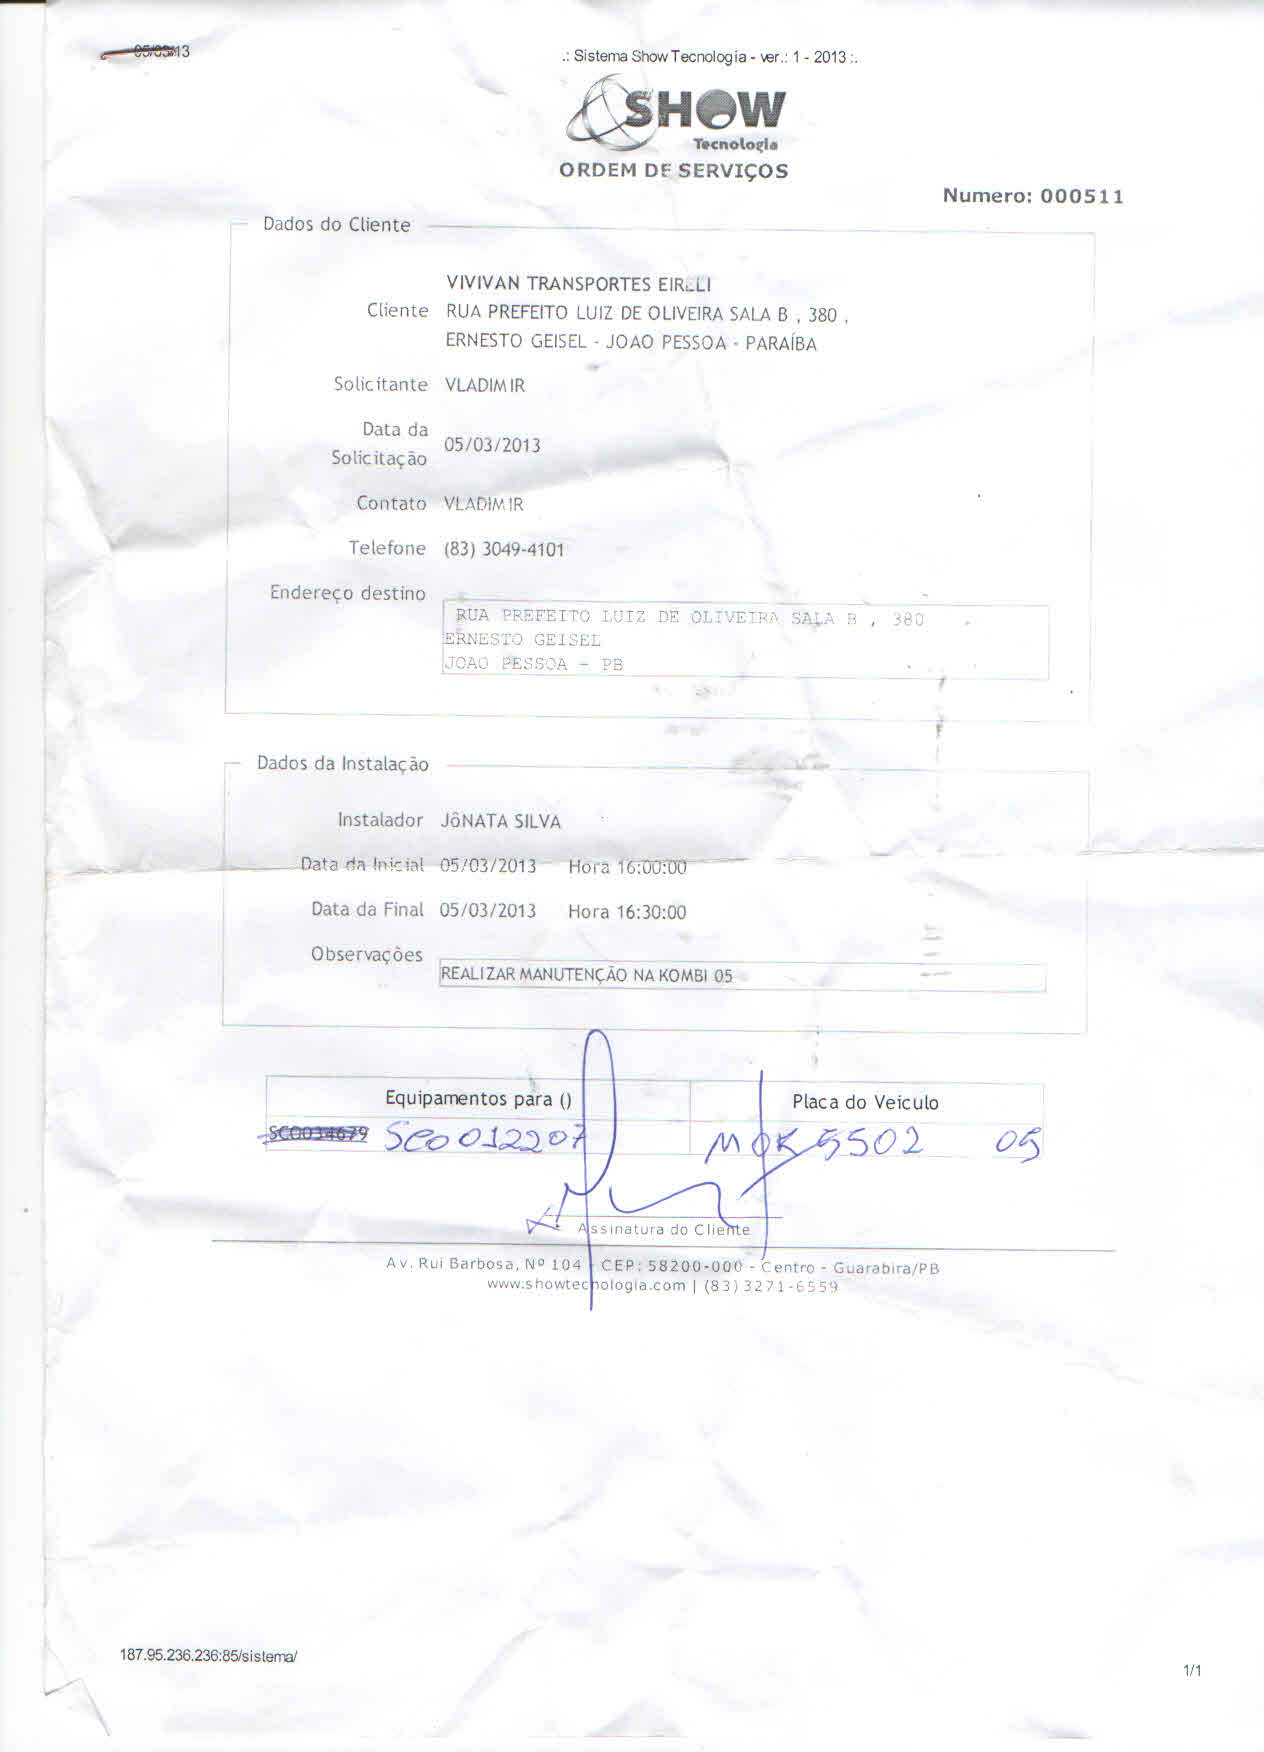 05/03/13
.: Sistema Show Tecnologia - ver.: 1 - 2013 :.
SHOW
Tecnologia
ORDEM DE SERVIÇOS
Numero: 000511
Dados do Cliente
VIVIVAN TRANSPORTES EIRELI
Cliente RUA PREFEITO LUIZ DE OLIVEIRA SALA B , 380 ,
ERNESTO GEISEL - JOAO PESSOA - PARAÍBA
Solicitante VLADIMIR
Data da
Solicitação 05/03/2013
Contato VLADIMIR
Telefone (83) 3049-4101
Endereço destino
RUA PREFEITO LUIZ DE OLIVEIRA SALA B , 380
ERNESTO GEISEL
JOAO PESSOA - PB
Dados da Instalação
Instalador JôNATA SILVA
Data da Inicial 05/03/2013 Hora 16:00:00
Data da Final 05/03/2013 Hora 16:30:00
Observações
REALIZAR MANUTENÇÃO NA KOMBI 05
Equipamentos para () Placa do Veiculo
SCO034679 SCO012207 MOK5502 05
Assinatura do Cliente
Av. Rui Barbosa, Nº 104 - CEP: 58200-000 - Centro - Guarabira/PB
www.showtecnologia.com | (83) 3271-6559
187.95.236.236:85/sistema/
1/1